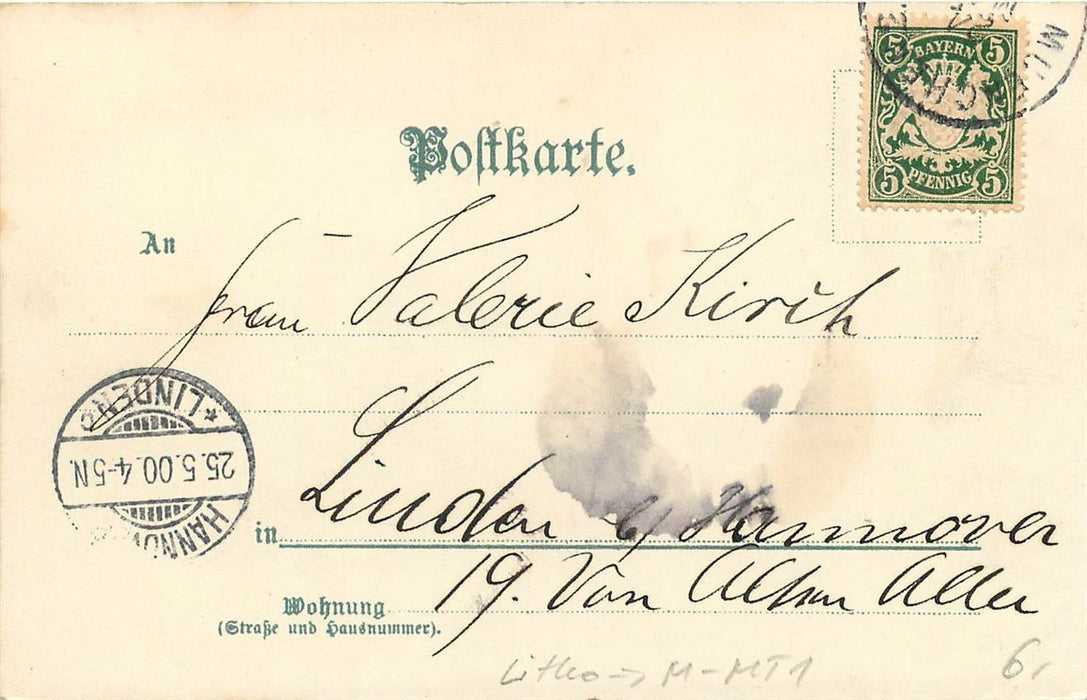 5 BAYERN 5
5 PFENNIG 5
Postkarte.
An
Frau Valerie Kirch
Linden b/ Hannover
in
19. Von Alten Allee
Wohnung
(Straße und Hausnummer).
*LINDEN*
25.5.00.4-5N.
HANNOV
Litho -> M-MT1
6,